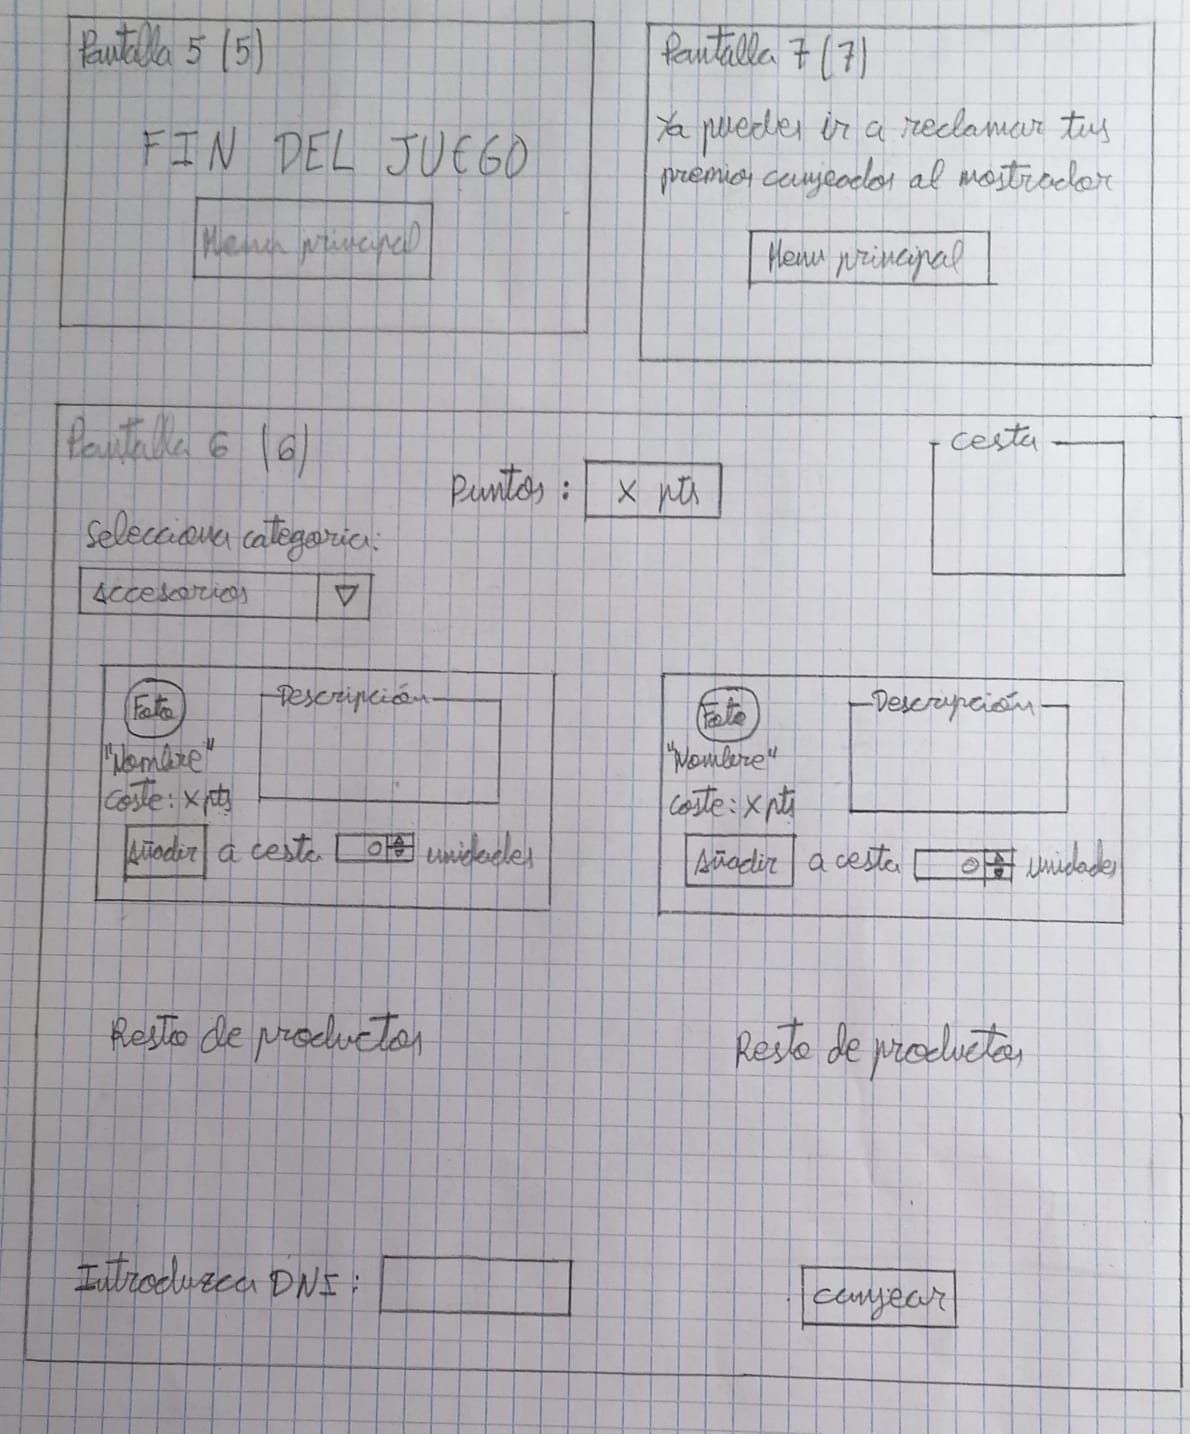 Pantalla 5 (5)
FIN DEL JUEGO
Menu principal
Pantalla 7 (7)
Ya puedes ir a reclamar tus
premios canjeados al mostrador
Menu principal
Pantalla 6 (6)
Puntos: X pts
cesta
Selecciona categoria:
Accesorios
Foto
Descripción
"Nombre"
coste: X pts
Añadir a cesta 0 unidades
Foto
Descripción
"Nombre"
coste: X pts
Añadir a cesta 0 unidades
Resto de productos
Resto de productos
Introduzca DNI:
canjear